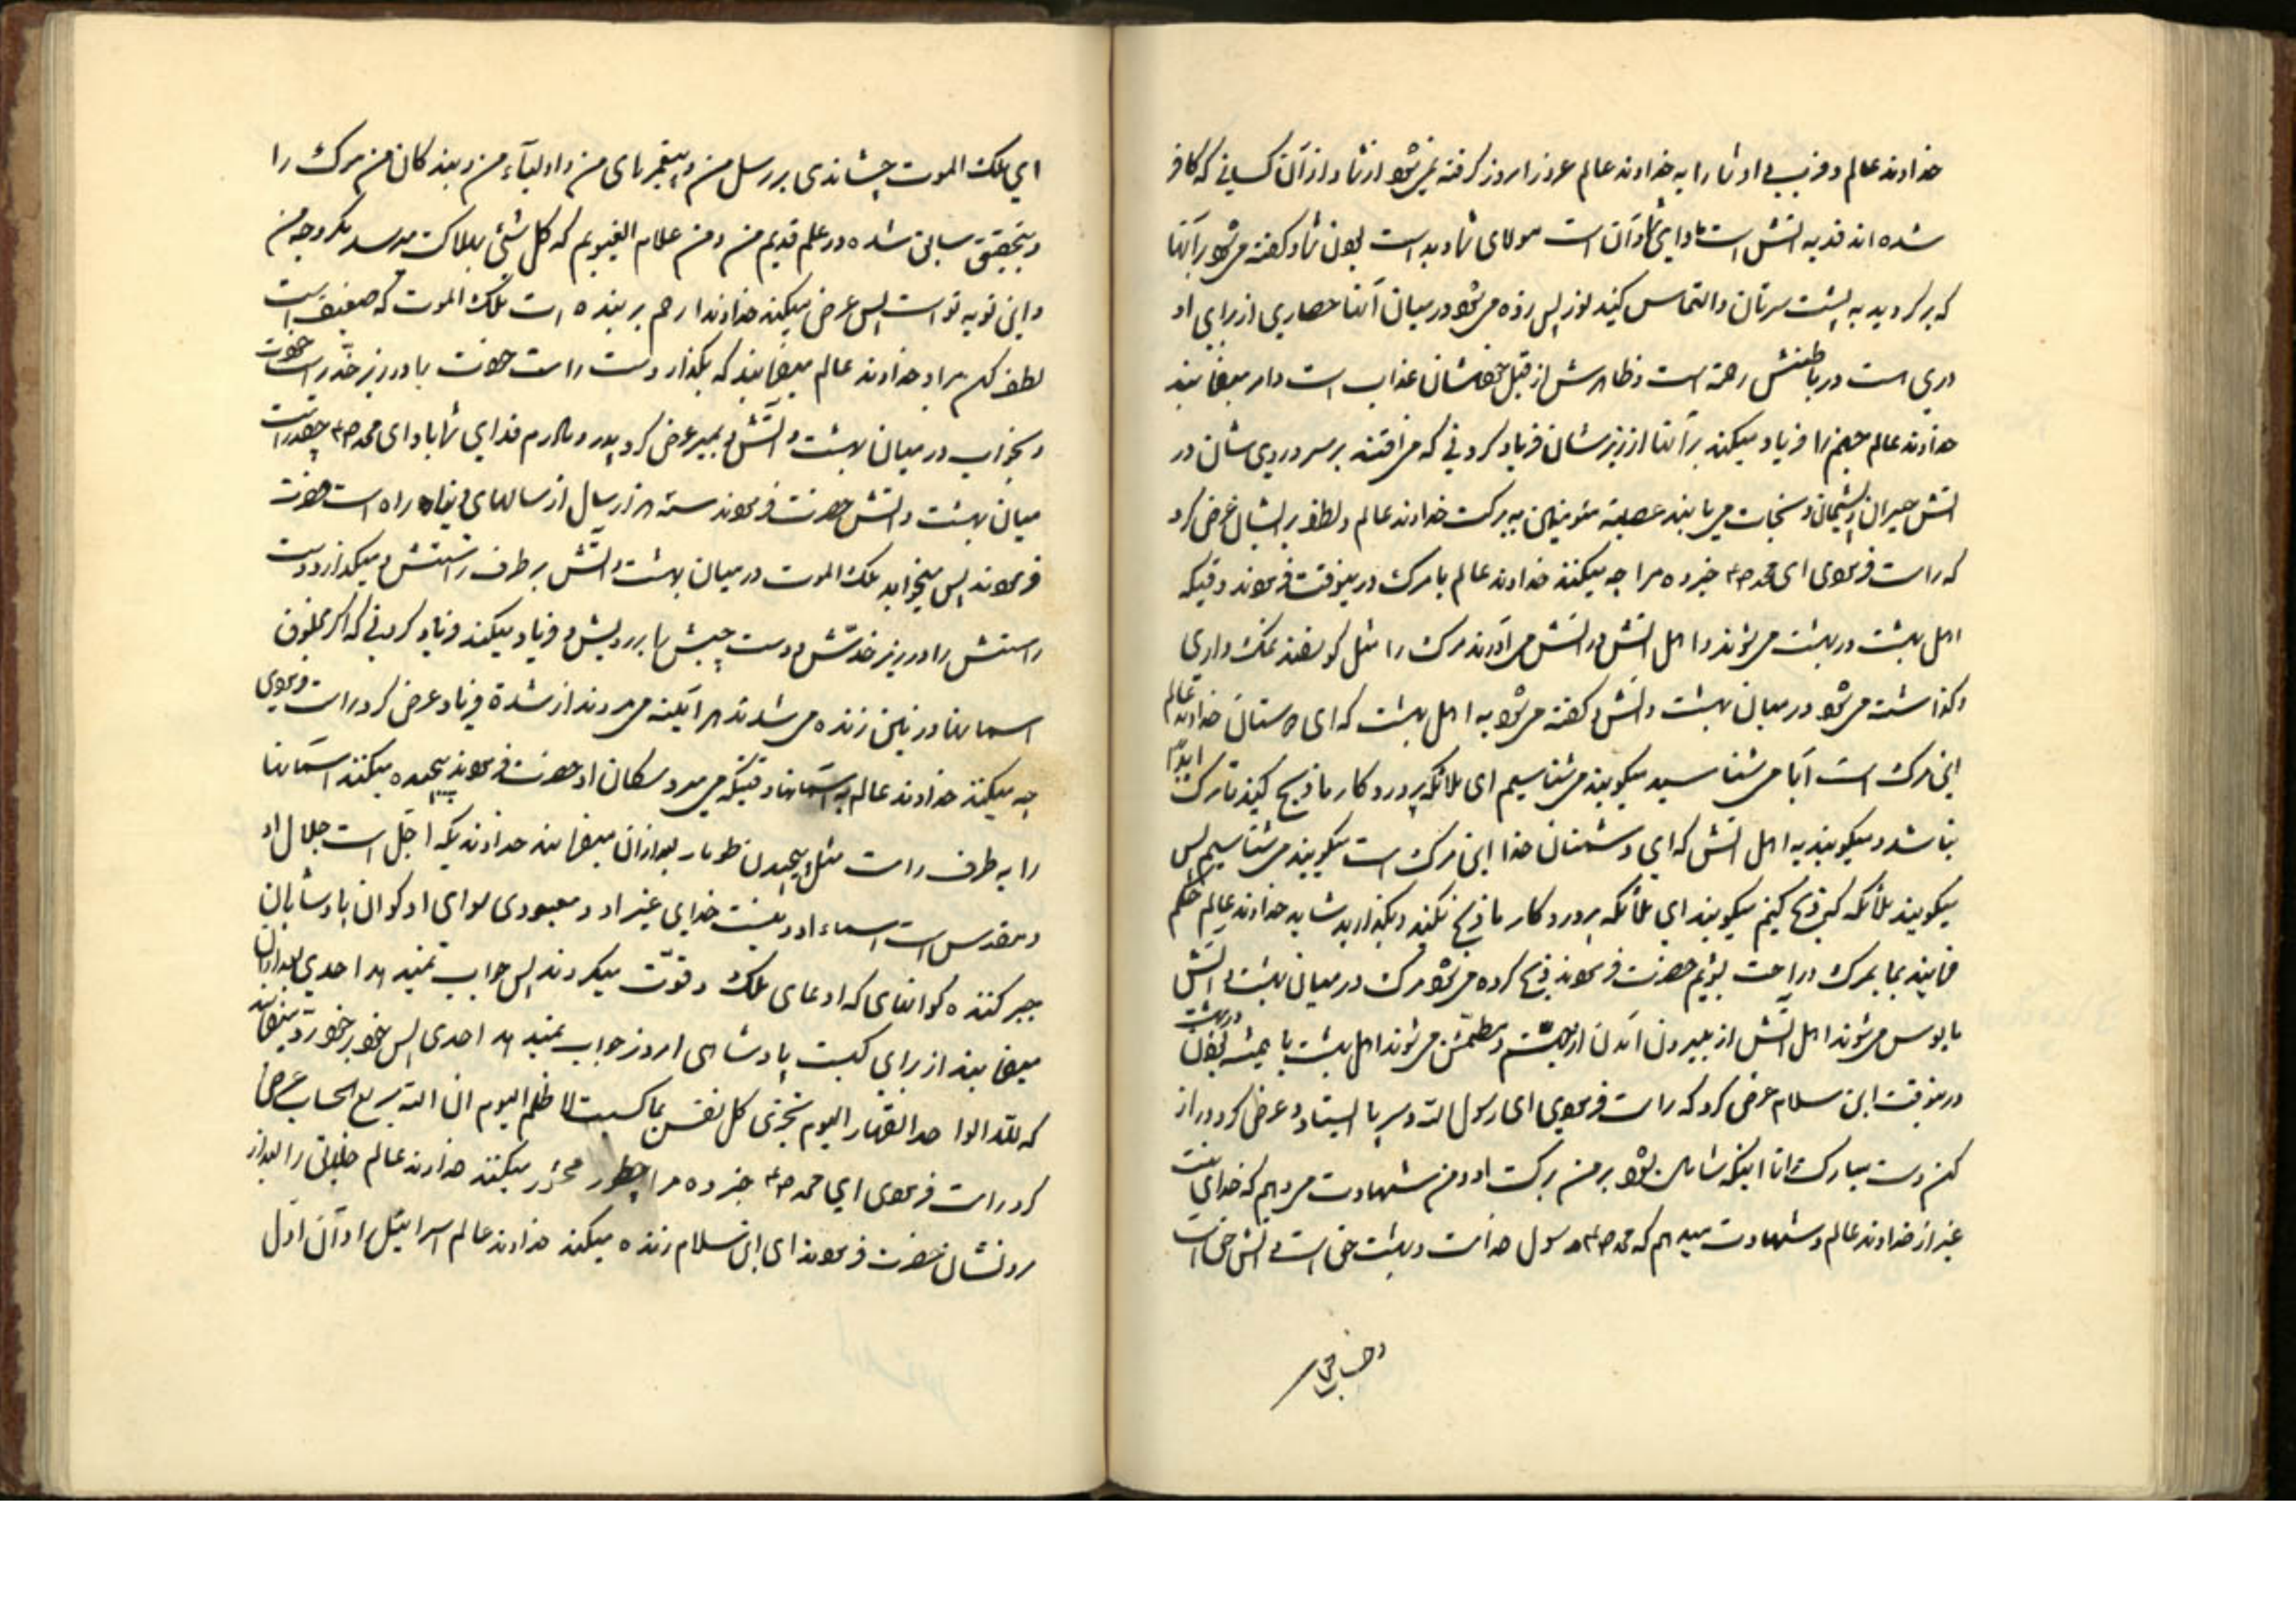 خداوند عالم و فریب داد شما را به خداوند عالم غرور امروز گرفته نمیشود از شما و از آن کسانی که کافر
شده اند فدیه آتش است مادای شما و آن است مولای شما و بد است بودن شما و گفته میشود بر آنها
که برگردید به پشت سرتان و التماس کنید نور پس زده میشود در میان آنها حصاری از برای او
دری است در باطنش رحمة است و ظاهرش از قبل عذاب است و امر میفرمایند
خداوند عالم جهنم را فریاد میکند بر آنها از زیرشان فریاد کردنی که می افتند بر سر و روی شان در
آتش حیران و پشیمان و نجات می یابند عصبة مئومنین به برکت خداوند عالم و لطف بر ایشان عرض کرد
که راست فرمودی ای محمد ص خبر ده مرا چه میکند خداوند عالم با مرگ در ینوقت فرمودند وقتیکه
اهل بهشت در بهشت میروند و اهل آتش در آتش می آورند مرگ را مثل گوسفند نمک داری
و گذاشته میشود در میان بهشت و آتش و گفته میشود به اهل بهشت که ای دوستان خداوند عالم
این مرگ است آیا می شناسید میگویند می شناسیم ای ملائکه پروردگار ما ذبح کنید تا مرگ ابدا
نباشد و میگویند به اهل آتش که ای دشمنان خدا این مرگ است میگویند می شناسیم پس
میگویند ملائکه که ذبح کنیم میگویند ای ملائکه پروردگار ما ذبح نکنید و بگذارید شاید خداوند عالم حکم
فرمایند بما بمرگ و راحت بشویم حضرت فرمودند ذبح کرده میشود مرگ در میان بهشت و آتش
مایوس میشوند اهل آتش از بیرون آمدن از و مطمئن میشوند اهل بهشت با همیشه بودن در بهشت
درینوقت ابن سلام عرض کرد که راست فرمودی ای رسول الله و سر پا ایستاد و عرض کرد دراز
کن دست مبارکت را تا اینکه شامل بشود بر من برکت او و من شهادت میدهم که خدایی نیست
غیر از خداوند عالم و شهادت میدهم که محمد ص رسول خداست و بهشت حق است و آتش حق است
و حساب حق

ای ملک الموت چشاندی بر رسل من و پیغمبرهای من و اولیآء من و بندگان من مرگ را
و بتحقیق سابق شده در علم قدیم من و من علام الغیوبم که کل شئی بهلاکت میرسد مگر وجه من
و این نوبه تو است پس عرض میکند خداوندا رحم بر بنده ات ملک الموت که ضعیف است
لطف کن مراد خداوند عالم میفرمایند که بگذار دست راست خودت را در زیر خد راست خودت
و بخواب در میان بهشت و آتش و بمیر عرض کرد پدر و مادرم فدای شما باد ای محمد ص چقدر است
میان بهشت و آتش حضرت فرمودند سه هزار سال از سالهای دنیا راه است حضرت
فرمودند پس میخوابد ملک الموت در میان بهشت و آتش بر طرف راستش و میگذارد دست
راستش را در زیر خدش و دست چپش را بر رویش و فریاد میکند فریاد کردنی که اگر مخلوق
آسمانها و زمین زنده می شدند هر آینه می مردند از شدة فریاد عرض کرد راست فرمودی
چه میکند خداوند عالم به آسمانها وقتیکه می میرد سکان او حضرت فرمودند پیچیده میکند آسمانها
را به طرف راست مثل پیچیدن طومار بعد از آن میفرمایند خداوندیکه اجل است جلال او
و مقدس است اسماء او و نیست خدایی غیر او و معبودی سوای او کو آن پادشاهان
جبر کننده کو آنهای که ادعای ملک و قوت میکردند پس جواب نمیدهد احدی بعد از آن
میفرمایند از برای کیست پادشاهی امروز جواب نمیدهد احدی پس خود بخود میفرماید
که لله الواحد القهار الیوم تجزی کل نفس بما کسبت لا ظلم الیوم ان الله سریع الحساب عرض
کرد راست فرمودی ای محمد ص خبر ده مرا چطور محشور میکند خداوند عالم خلایق را بعد از
مردنشان حضرت فرمودند ای ابن سلام زنده میکند خداوند عالم اسرافیل را و آن اول